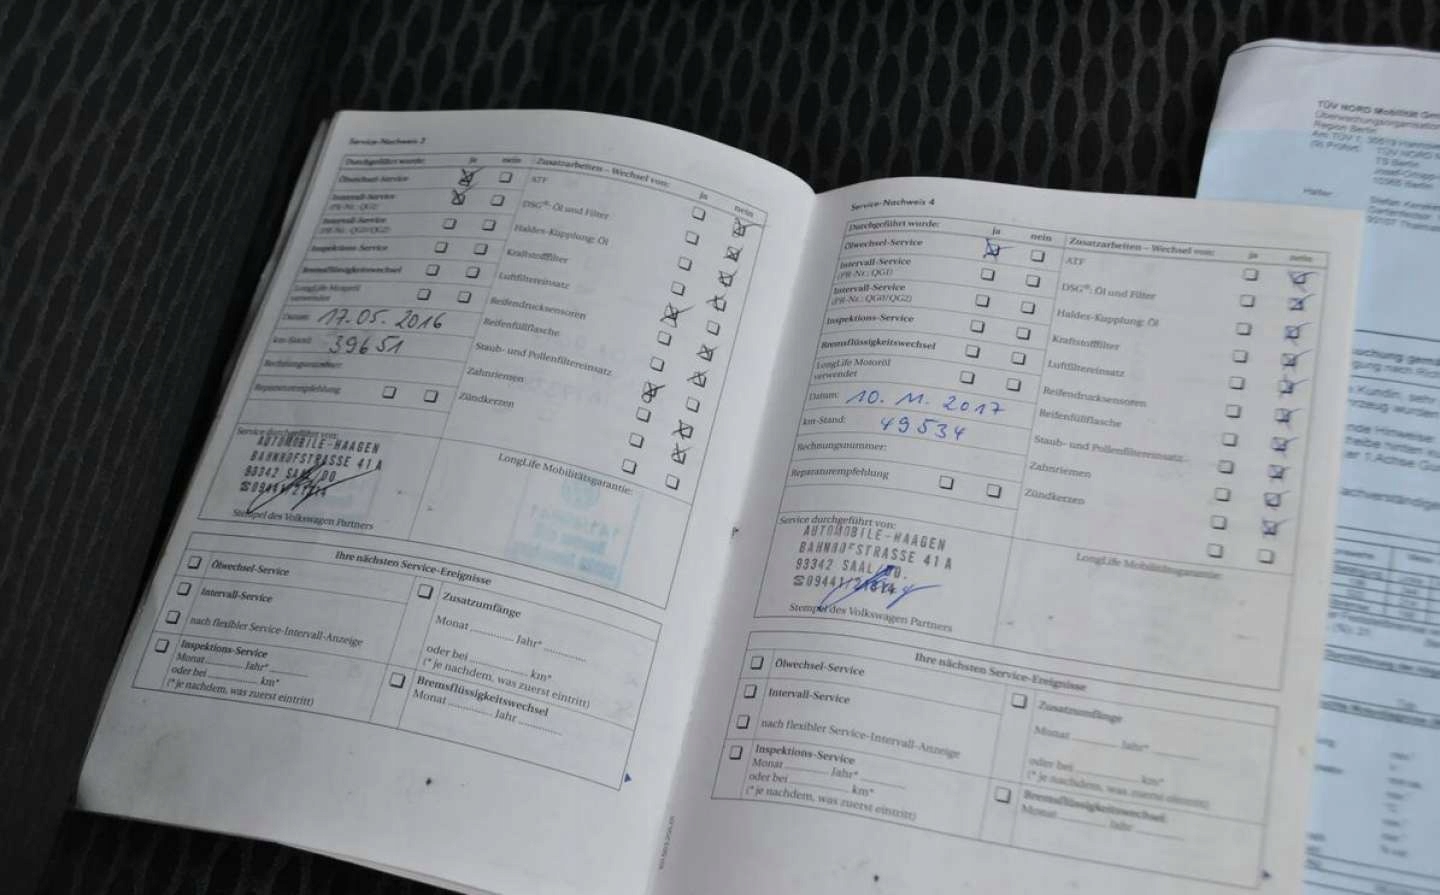 Service-Nachweis 2
Durchgeführt wurde: ja nein
Ölwechsel-Service
Intervall-Service
(PR-Nr.: QG1)
Intervall-Service
(PR-Nr.: QG0/QG2)
Inspektions-Service
Bremsflüssigkeitswechsel
LongLife Motoröl
verwendet
Datum: 17.05.2016
km-Stand: 39651
Rechnungsnummer:
Reparaturempfehlung
Service durchgeführt von:
AUTOMOBILE-HAAGEN
BAHNHOFSTRASSE 41 A
93342 SAAL/DO.
☎09441/21814
Stempel des Volkswagen Partners
Zusatzarbeiten – Wechsel von: ja nein
ATF
DSG®: Öl und Filter
Haldex-Kupplung: Öl
Kraftstofffilter
Luftfiltereinsatz
Reifendrucksensoren
Reifenfüllflasche
Staub- und Pollenfiltereinsatz
Zahnriemen
Zündkerzen
LongLife Mobilitätsgarantie:
Ihre nächsten Service-Ereignisse
Ölwechsel-Service
Intervall-Service
nach flexibler Service-Intervall-Anzeige
Inspektions-Service
Monat ............ Jahr* ............
oder bei ............ km*
(* je nachdem, was zuerst eintritt)
Zusatzumfänge
Monat ............ Jahr* ............
oder bei ............ km*
(* je nachdem, was zuerst eintritt)
Bremsflüssigkeitswechsel
Monat ............ Jahr ............
Service-Nachweis 4
Durchgeführt wurde: ja nein
Ölwechsel-Service
Intervall-Service
(PR-Nr.: QG1)
Intervall-Service
(PR-Nr.: QG0/QG2)
Inspektions-Service
Bremsflüssigkeitswechsel
LongLife Motoröl
verwendet
Datum: 10.11.2017
km-Stand: 49534
Rechnungsnummer:
Reparaturempfehlung
Service durchgeführt von:
AUTOMOBILE-HAAGEN
BAHNHOFSTRASSE 41 A
93342 SAAL/DO.
☎09441/21814
Stempel des Volkswagen Partners
Zusatzarbeiten – Wechsel von: ja nein
ATF
DSG®: Öl und Filter
Haldex-Kupplung: Öl
Kraftstofffilter
Luftfiltereinsatz
Reifendrucksensoren
Reifenfüllflasche
Staub- und Pollenfiltereinsatz
Zahnriemen
Zündkerzen
LongLife Mobilitätsgarantie:
Ihre nächsten Service-Ereignisse
Ölwechsel-Service
Intervall-Service
nach flexibler Service-Intervall-Anzeige
Inspektions-Service
Monat ............ Jahr* ............
oder bei ............ km*
(* je nachdem, was zuerst eintritt)
Zusatzumfänge
Monat ............ Jahr* ............
oder bei ............ km*
(* je nachdem, was zuerst eintritt)
Bremsflüssigkeitswechsel
Monat ............ Jahr ............
TÜV NORD Mobilität
Region Berlin
TÜV NORD
TS Berlin
10365 Berlin
Halter: